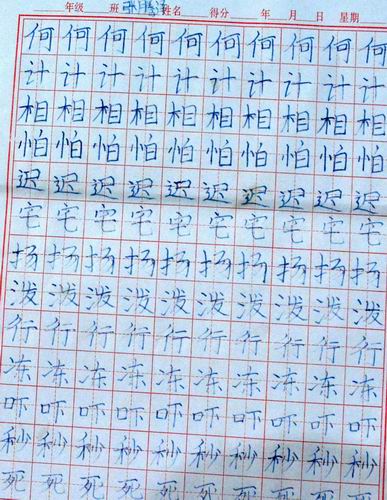 年级 班 姓名 得分 年 月 日 星期
何 何 何 何 何 何 何 何 何 何
计 计 计 计 计 计 计 计 计 计
相 相 相 相 相 相 相 相 相 相
怕 怕 怕 怕 怕 怕 怕 怕 怕 怕
迟 迟 迟 迟 迟 迟 迟 迟 迟 迟
宅 宅 宅 宅 宅 宅 宅 宅 宅 宅
扬 扬 扬 扬 扬 扬 扬 扬 扬 扬
泼 泼 泼 泼 泼 泼 泼 泼 泼 泼
行 行 行 行 行 行 行 行 行 行
冻 冻 冻 冻 冻 冻 冻 冻 冻 冻
吓 吓 吓 吓 吓 吓 吓 吓 吓 吓
秒 秒 秒 秒 秒 秒 秒 秒 秒 秒
死 死 死 死 死 死 死 死 死 死